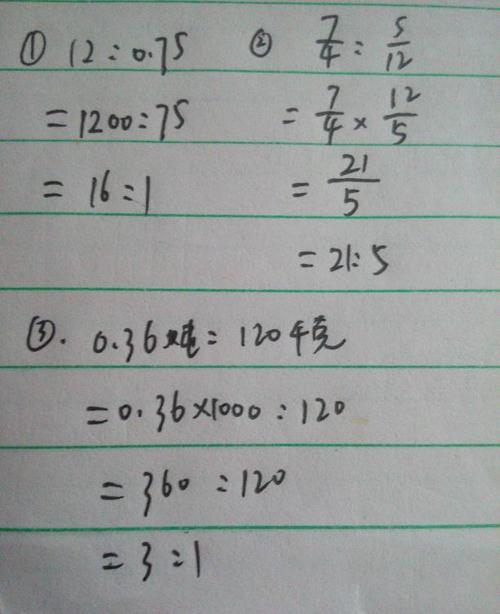 ① 12:0.75
=1200:75
=16:1
② 7/4:5/12
=7/4×12/5
=21/5
=21:5
③. 0.36吨:120千克
=0.36×1000:120
=360:120
=3:1